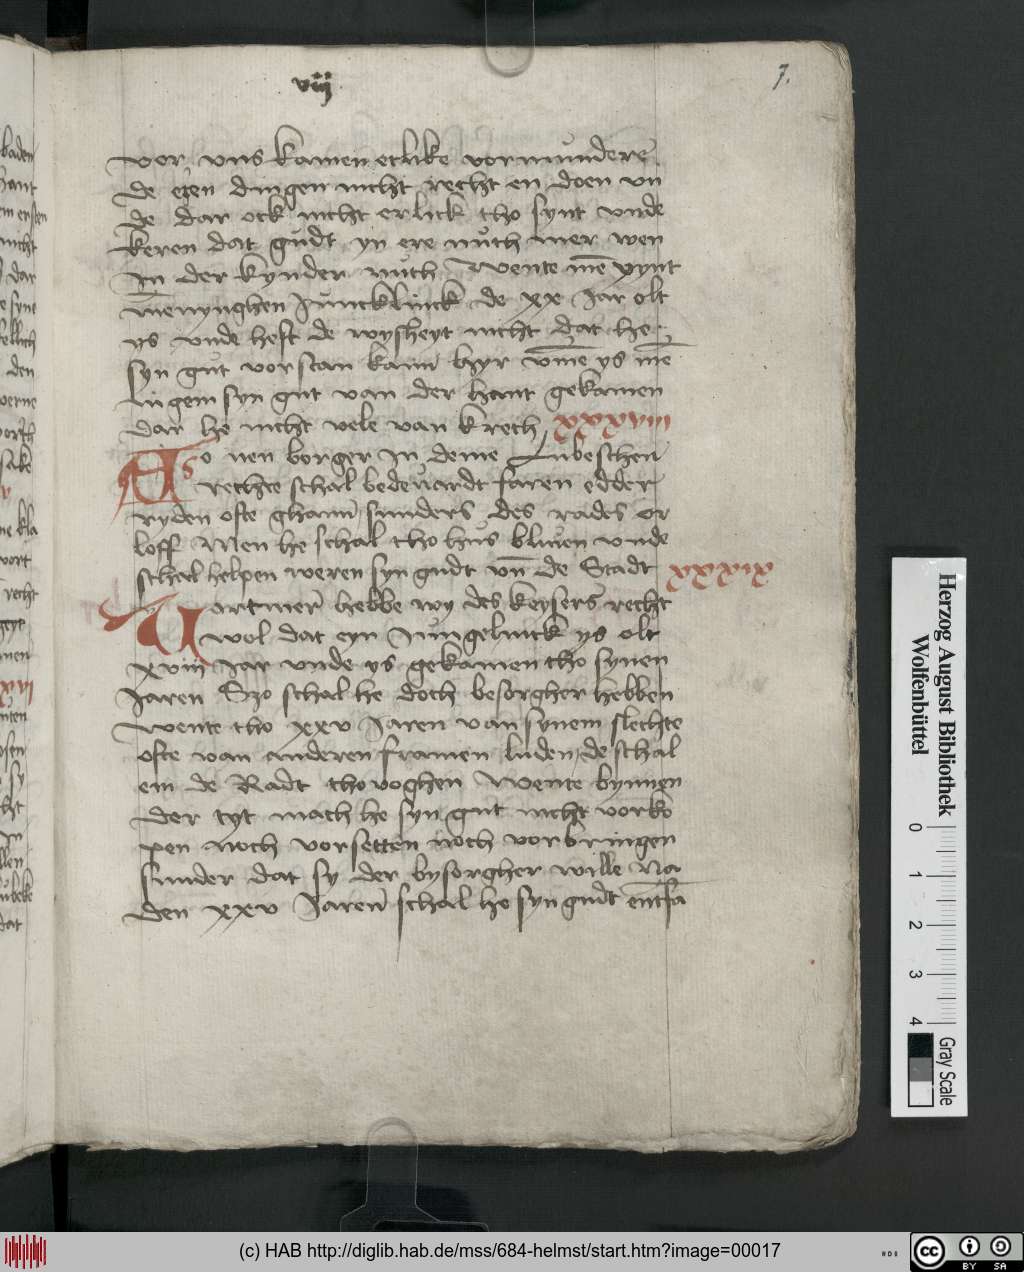 viij
7.
vor vns kamen etlike vormundere
de eren dingen nicht recht en doen vn
de dar ock nicht erlick tho synt vnde
keren dat gudt yn ere nuth mer wen
In der kynder nuth Wente mē vynt
mēnynghen Juncklinck de xx Jar olt
ys vnde heft de wysheyt nicht dat he
syn gut vorstan kann hyr vmē ys mē
gem syn gut van der hant gekamen
dar he nicht vele van krech xxxviii
So nen borger In deme Lubeschen
rechte schal bedeuardt faren edder
ryden ofte ghann sunders des rades or
loff Men he schal tho hus bliuen vnde
schal helpen weren syn gudt vn̄ de Stadt xxxix
Vortmer hebbe wy des keysers recht
wol dat eyn Jungelinck ys olt
xviii Jar vnde ys gekamen tho synen
Jaren Szo schal he doch besorgher hebben
wente tho xxv Jaren van synem slechte
ofte van anderen framen luden de schal
em de Radt thovoghen Wente bynnen
der tyt mach he syn gut nicht vorko
pen noch vorsetten noch vorbringen
sunder dat sy der bysorgher wille Na
den xxv Jaren schal he syn gudt entfa
baden
hant
nicht
dar
den
recht
dat
Herzog August Bibliothek
Wolfenbüttel
0 1 2 3 4
Gray Scale
(c) HAB http://diglib.hab.de/mss/684-helmst/start.htm?image=00017
cc BY SA